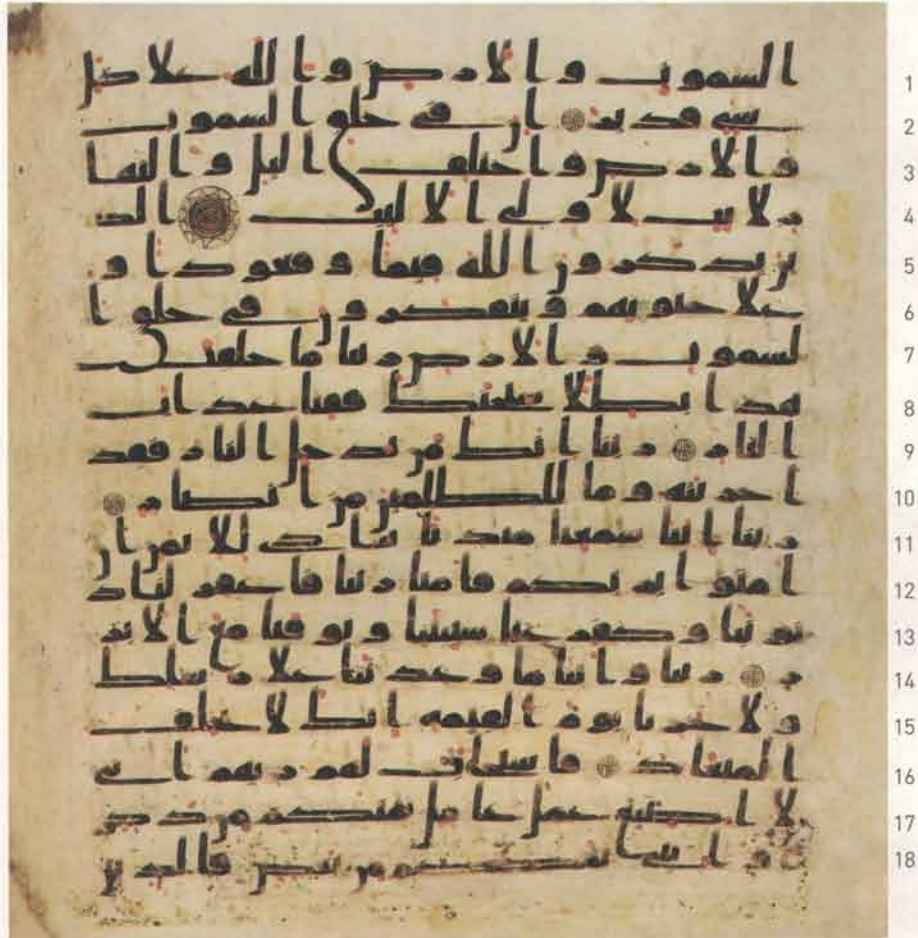 السموت والارض والله علا كل 1
شي قدير ان في خلق السموت 2
والارض واختلف اليل والنها 3
ر لايت لاولي الالبب الذ 4
ين يذكرون الله قيما وقعودا و 5
علا جنوبهم ويتفكرون في خلق ا 6
لسموت والارض ربنا ما خلقت 7
هذا بطلا سبحنك فقنا عذاب 8
النار ربنا انك من تدخل النار فقد 9
اخزيته وما للظلمين من انصار 10
ربنا اننا سمعنا منديا ينادي للايمن ان 11
امنوا بربكم فامنا ربنا فاغفر لنا ذ 12
نوبنا وكفر عنا سيتنا وتوفنا مع الابر 13
ر ربنا واتنا ما وعدتنا علا رسلك 14
ولا تخزنا يوم القيمه انك لا تخلف 15
الميعاد فاستجاب لهم ربهم اني 16
لا اضيع عمل عامل منكم من ذكر 17
او انثى بعضكم من بعض فالذين 18